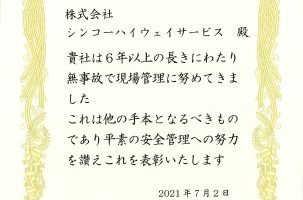 株式会社
シンコーハイウェイサービス　殿
貴社は６年以上の長きにわたり
無事故で現場管理に努めてきま
した
これは他の手本となるべきもの
であり平素の安全管理への努力
を讃えこれを表彰いたします
2021年７月２日